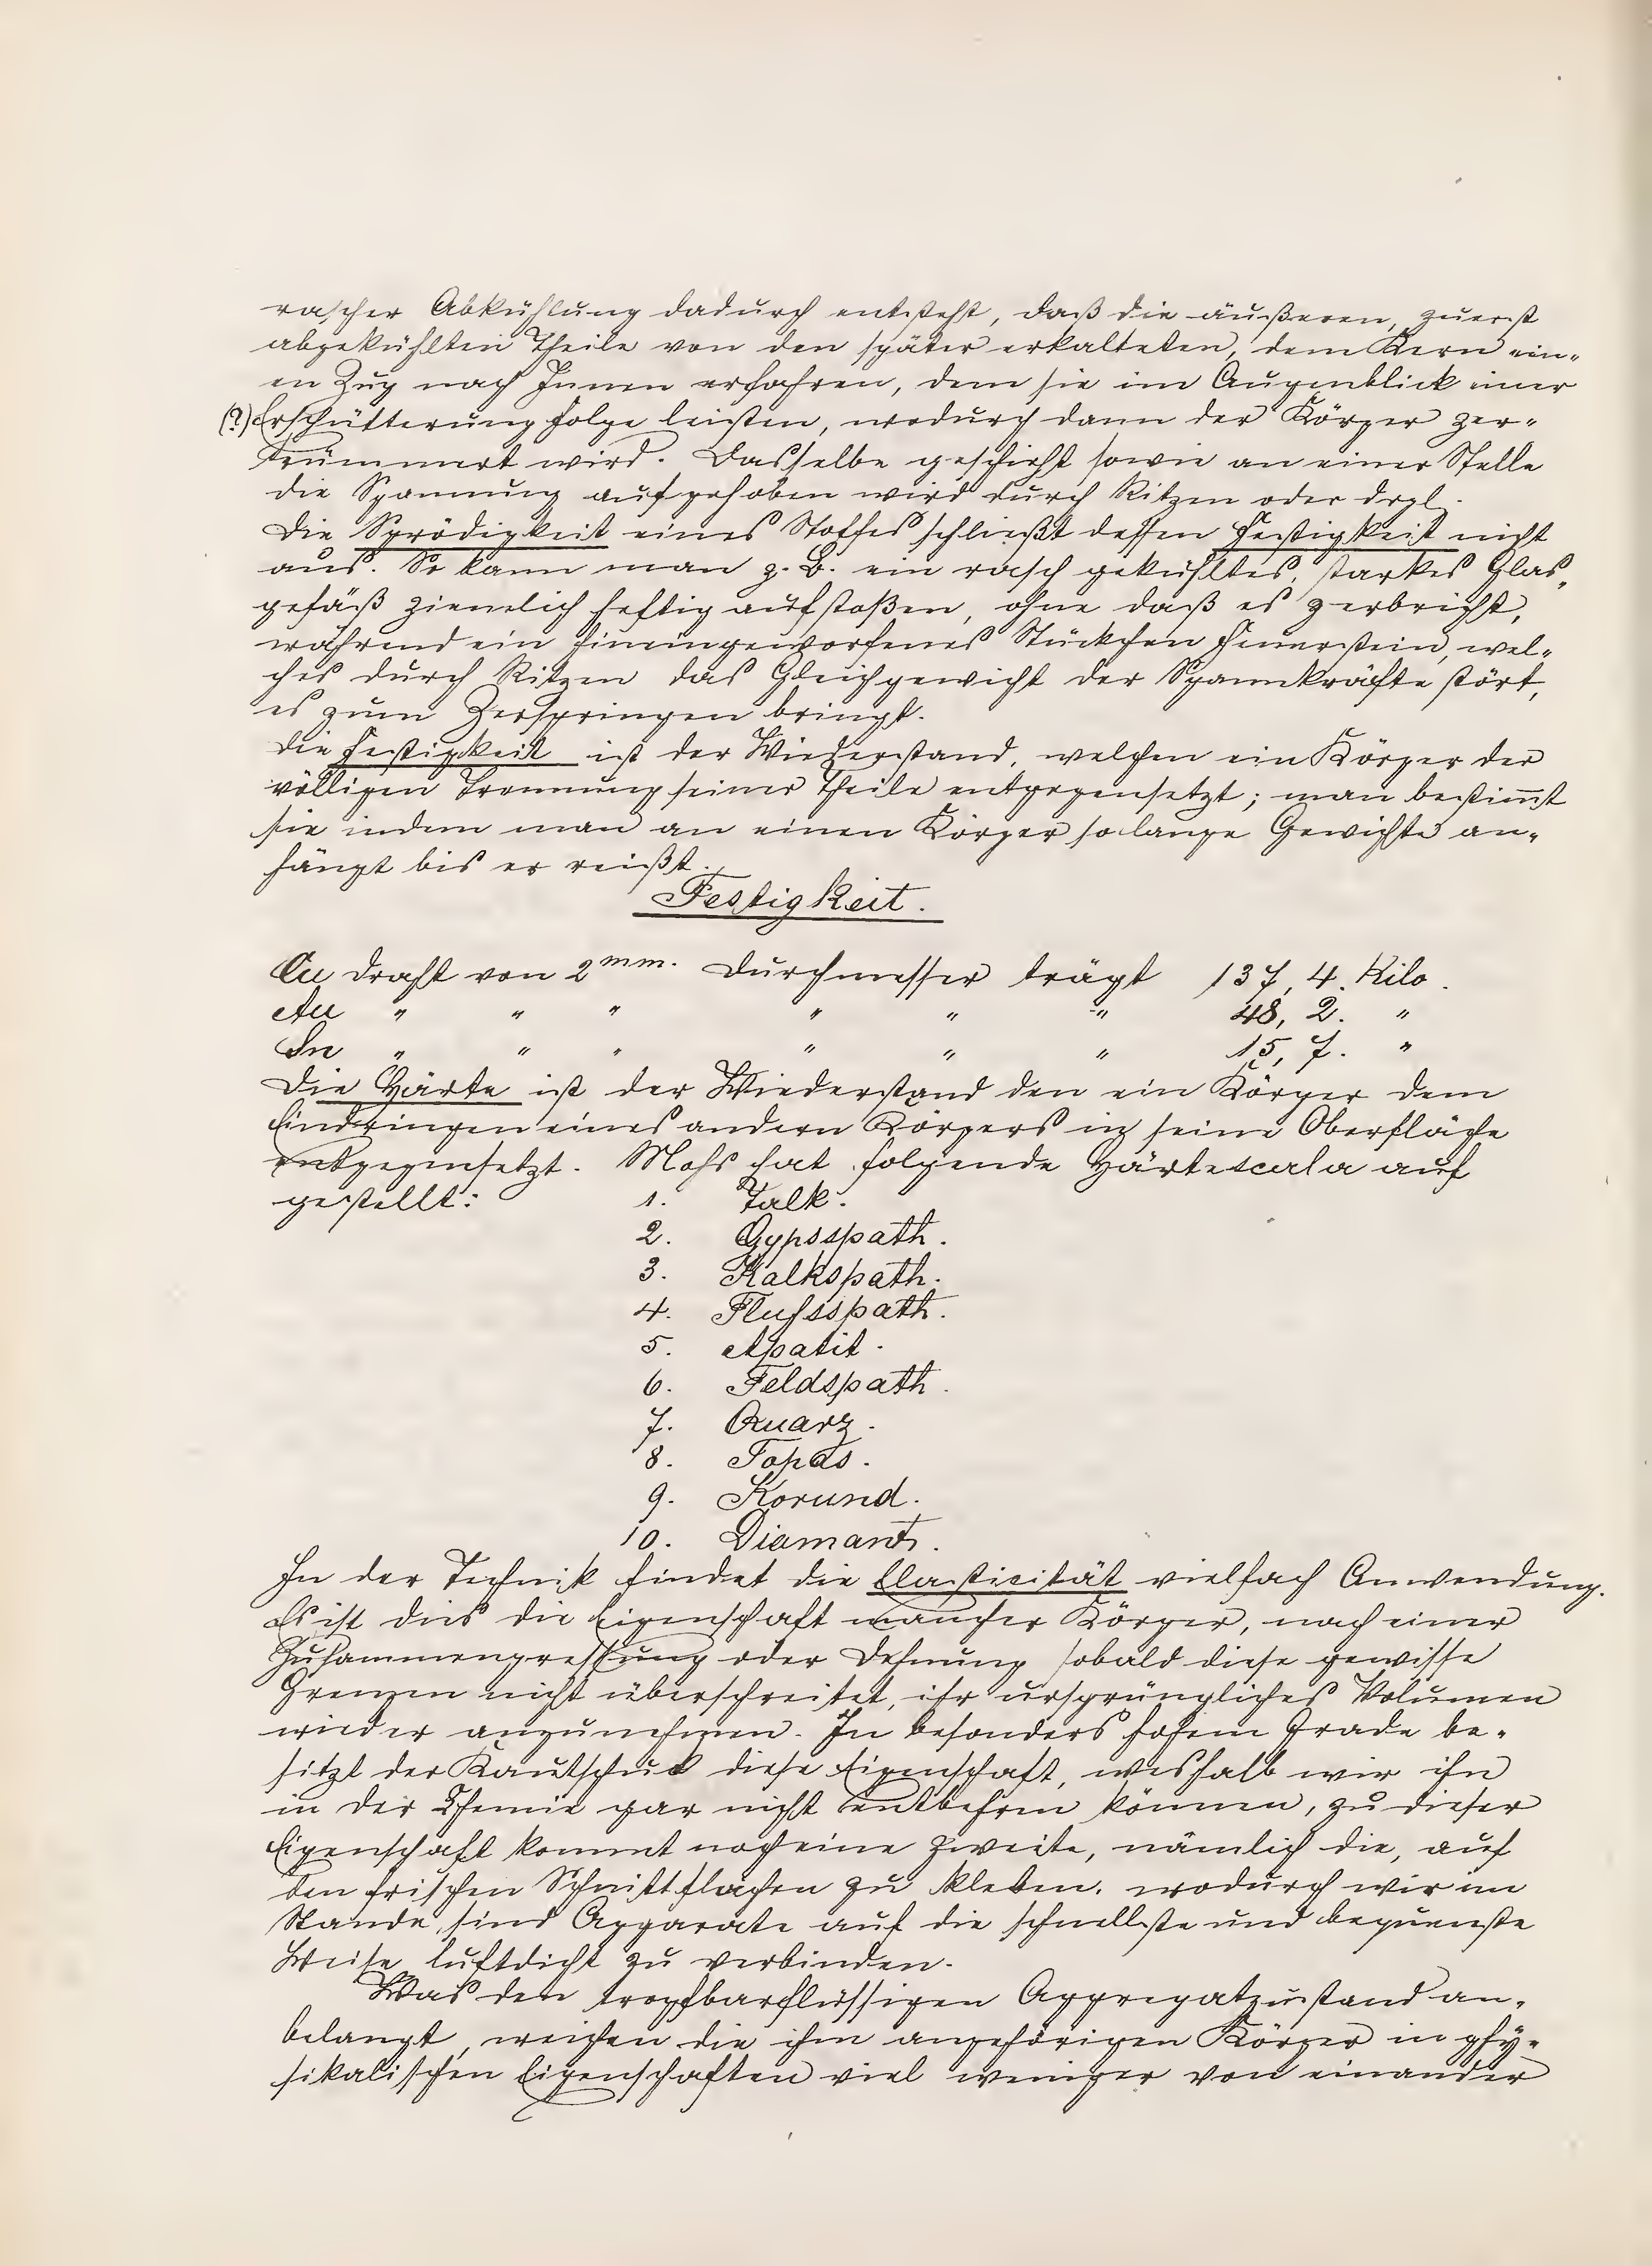 rascher Abkühlung dadurch entsteht, daß die äußeren, zuerst
abgekühlten Theile von den später erkalteten, dem Kern ein-
en Zug nach Innen erfahren, dem sie im Augenblick einer
(?) Erschütterung Folge leisten, wodurch dann der Körper zer-
trümmert wird. Dasselbe geschieht sowie an einer Stelle
die Spannung aufgehoben wird durch Ritzen oder drgl.
Die Sprödigkeit eines Stoffes schließt dessen Festigkeit nicht
aus. So kann man z. B. ein rasch gekühltes, starkes Glas-
gefäß ziemlich heftig aufstoßen, ohne daß es zerbricht,
während ein hineingeworfenes Stückchen Feuerstein, wel-
ches durch Ritzen das Gleichgewicht der Spannkräfte stört,
es zum Zerspringen bringt.
Die Festigkeit ist der Wiederstand, welchen ein Körper der
völligen Trennung seiner Theile entgegensetzt; man bestimt
sie indem man an einen Körper so lange Gewichte an-
hängt bis er reißt.
Festigkeit.
Cu draht von 2 mm. Durchmesser trägt 137, 4. Kilo.
Au " " " " " " 48, 2. "
Sn " " " " " " 15, 7. "
Die Härte ist der Wiederstand den ein Körper dem
Eindringen eines andern Körpers in seine Oberfläche
entgegensetzt. Mohs hat folgende Härtescala auf
gestellt: 1. Talk.
2. Gypsspath.
3. Kalkspath.
4. Flussspath.
5. Apatit.
6. Feldspath.
7. Quarz.
8. Topas.
9. Korund.
10. Diamant.
In der Technik findet die Elasticität vielfach Anwendung.
Es ist dies die Eigenschaft mancher Körper, nach einer
Zusammenpressung oder Dehnung sobald diese gewisse
Grenzen nicht überschreitet, ihr ursprüngliches Volumen
wieder anzunehmen. In besonders hohem Grade be-
sitzt der Kautschuk diese Eigenschaft, weshalb wir ihn
in der Chemie gar nicht entbehren können, zu dieser
Eigenschaft kommt noch eine zweite, nämlich die, auf
den frischen Schnittflächen zu kleben, wodurch wir im
Stande sind Apparate auf die schnellste und bequemste
Weise luftdicht zu verbinden.
Was den tropfbarflüssigen Aggregatzustand an-
belangt, weichen die ihm angehörigen Körper in phy-
sikalischen Eigenschaften viel weniger von einander